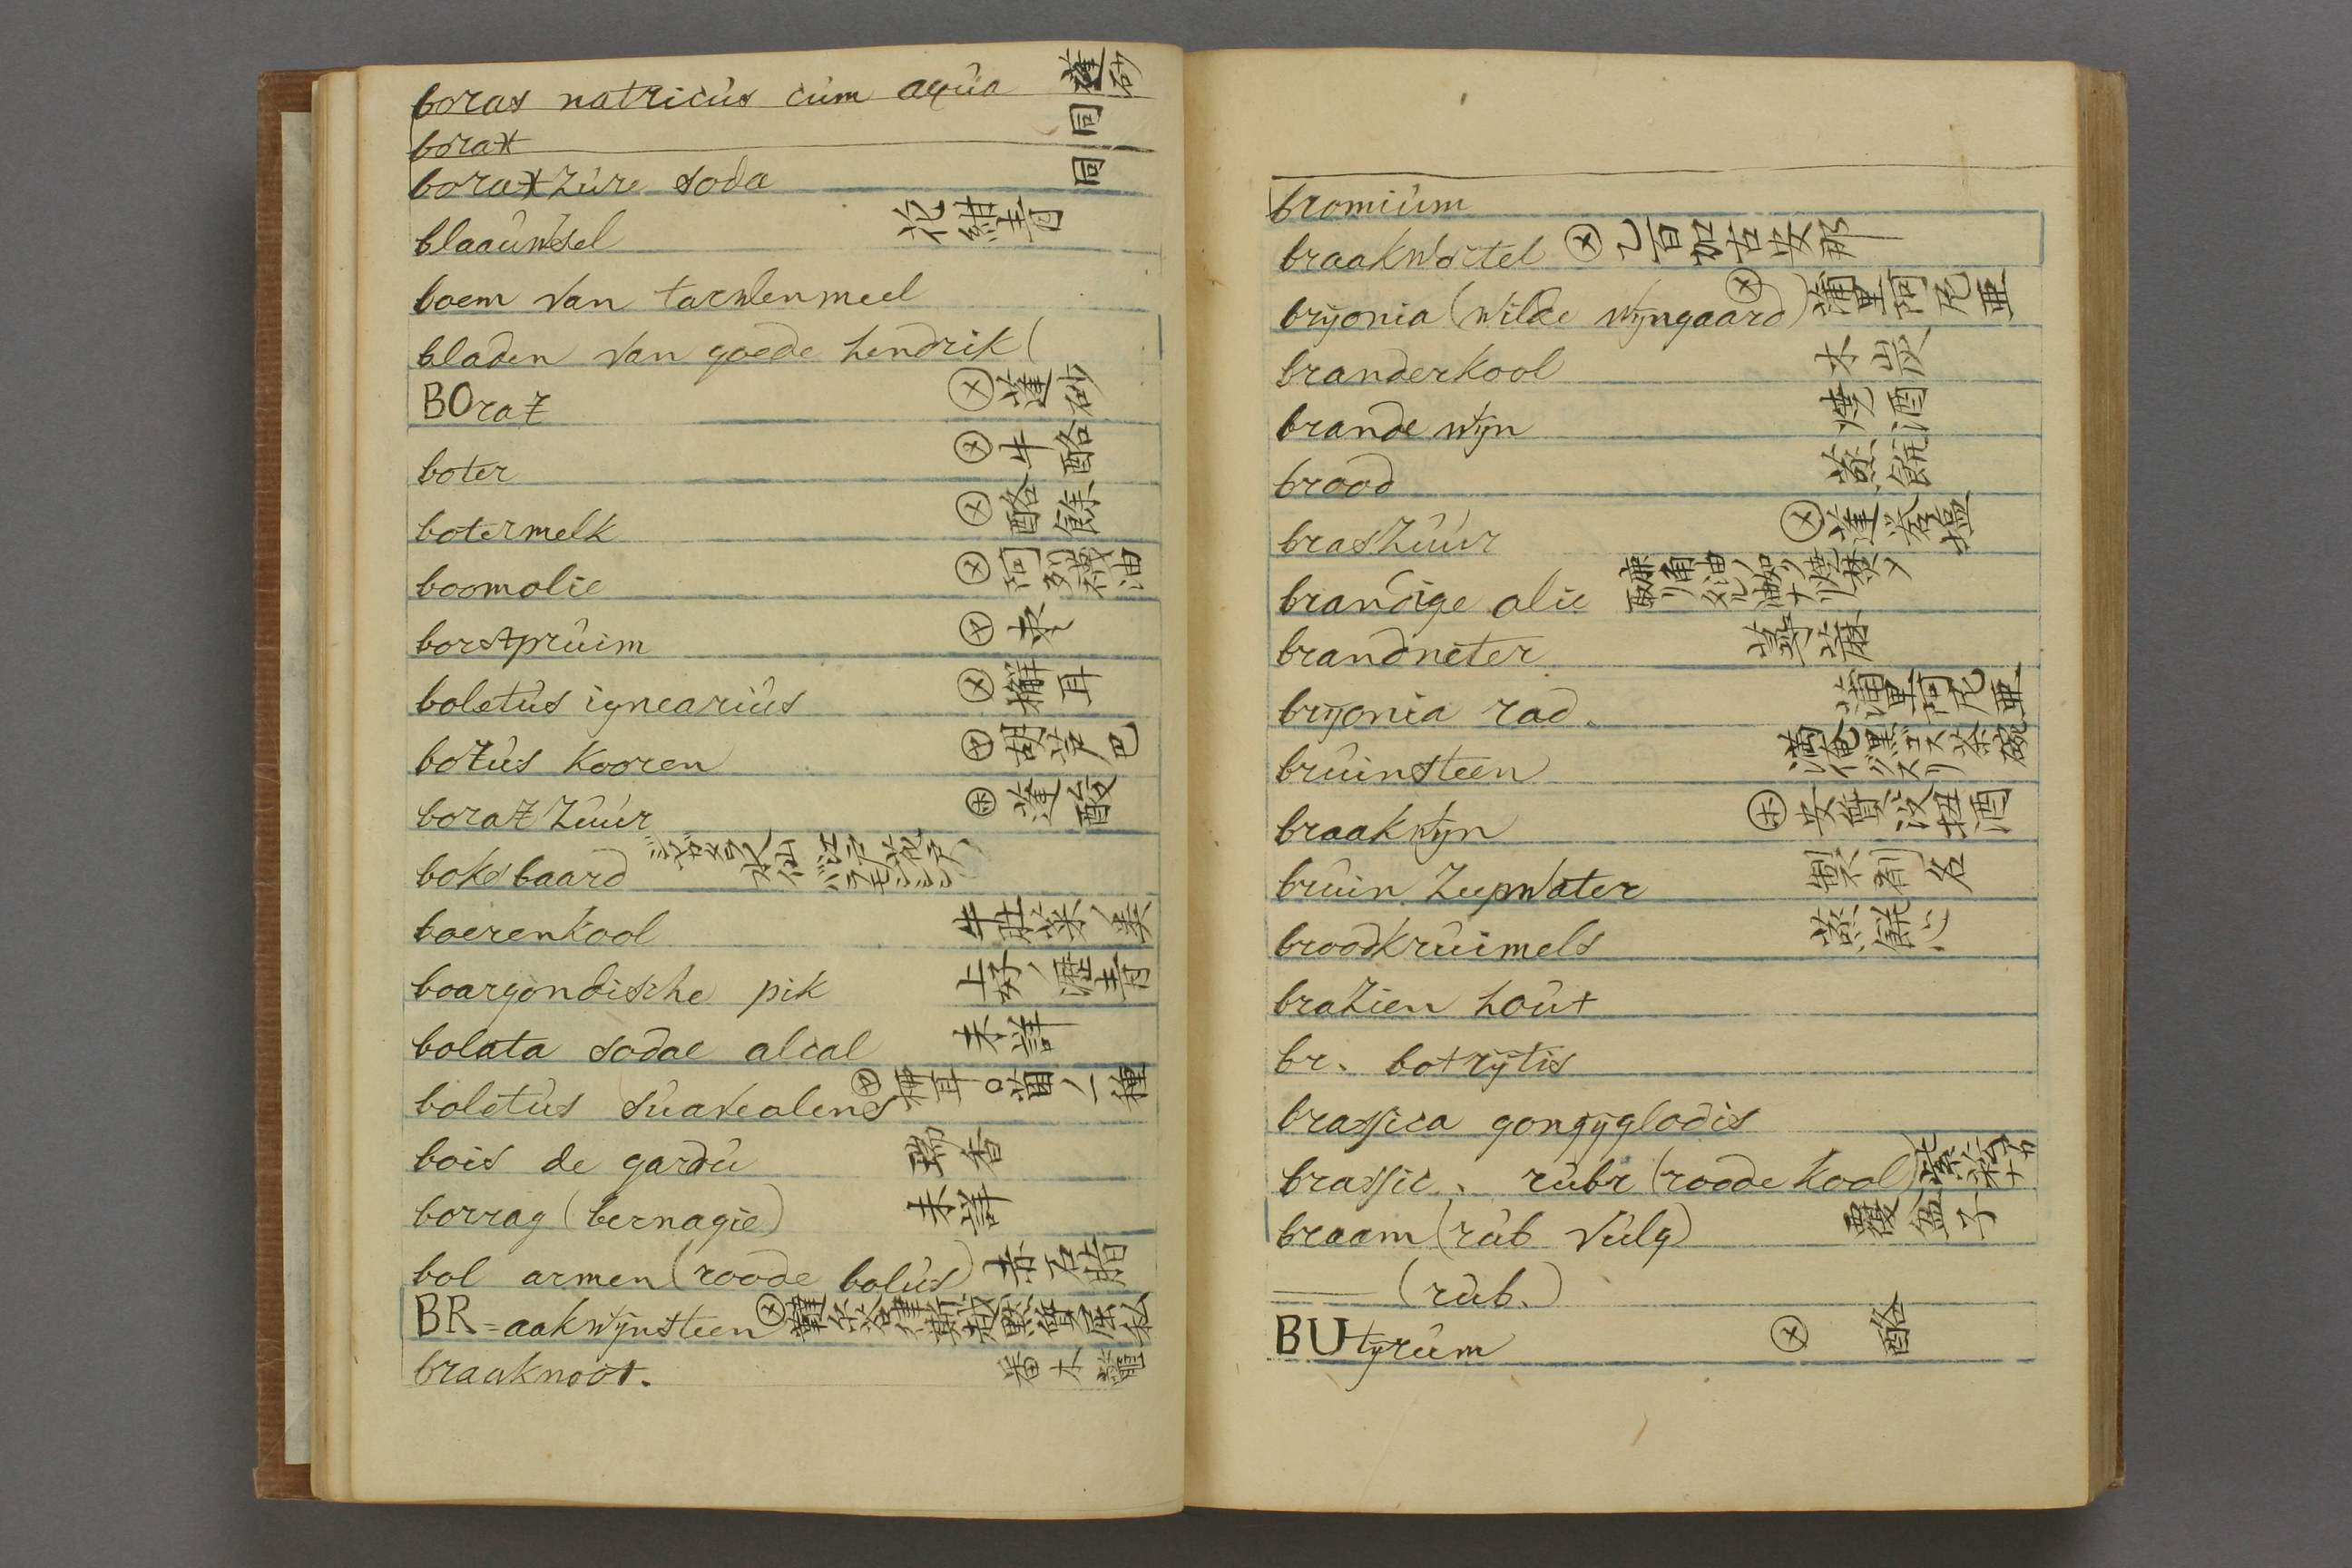 boras natricus cum aqua 蓬砂
borax 同
boraxzure soda 同
blaauwsel 花紺青
boem van tarwenmeel
bladen van goede hendrik (
BOraz ⊗ 蓬砂
boter ⊗ 牛酪
botermelk ⊗ 酪餘
boomolie ⊗ 阿列襪油
borstpruim ⊕
boletus ignearius ⊗ 耳
bozus kooren ⊕ 胡芦巴
borazzuur 蓬酸
boksbaard
boerenkool 牡菜ノ
boargondische pik 上好ノ瀝青
bolata sodae alcal 未詳
boletus suavealens 耳○ノ一種
bois de gardu 香
borrag (bernagie) 未詳
bol armen (roode bolus) 赤石脂
BR=aakwijnsteen ⊗
braaknoot. 番木鼈
bromium
braakwortel ⊗ 乙百加古安那
bryonia (wilde wijngaard) ⊗ 蒲里阿尼亜
branderkool 木炭
brandewijn 焼酒
brood 蒸餅
braszuur ⊗ 蓬
brandige olie
brandneter 蕁麻
bryonia rad. 蒲里阿尼亜
bruinsteen 満俺
braakwijn 安質没扭酒
bruin zeepwater 製剤名
broodkruimels 蒸餅心
brazien hout
br. botrytis
brassica gongyglodis
brassic. rubr (roode kool)
braam (rub vulg) 覆盆子
— (rub.)
BUtyrum ⊗ 酪